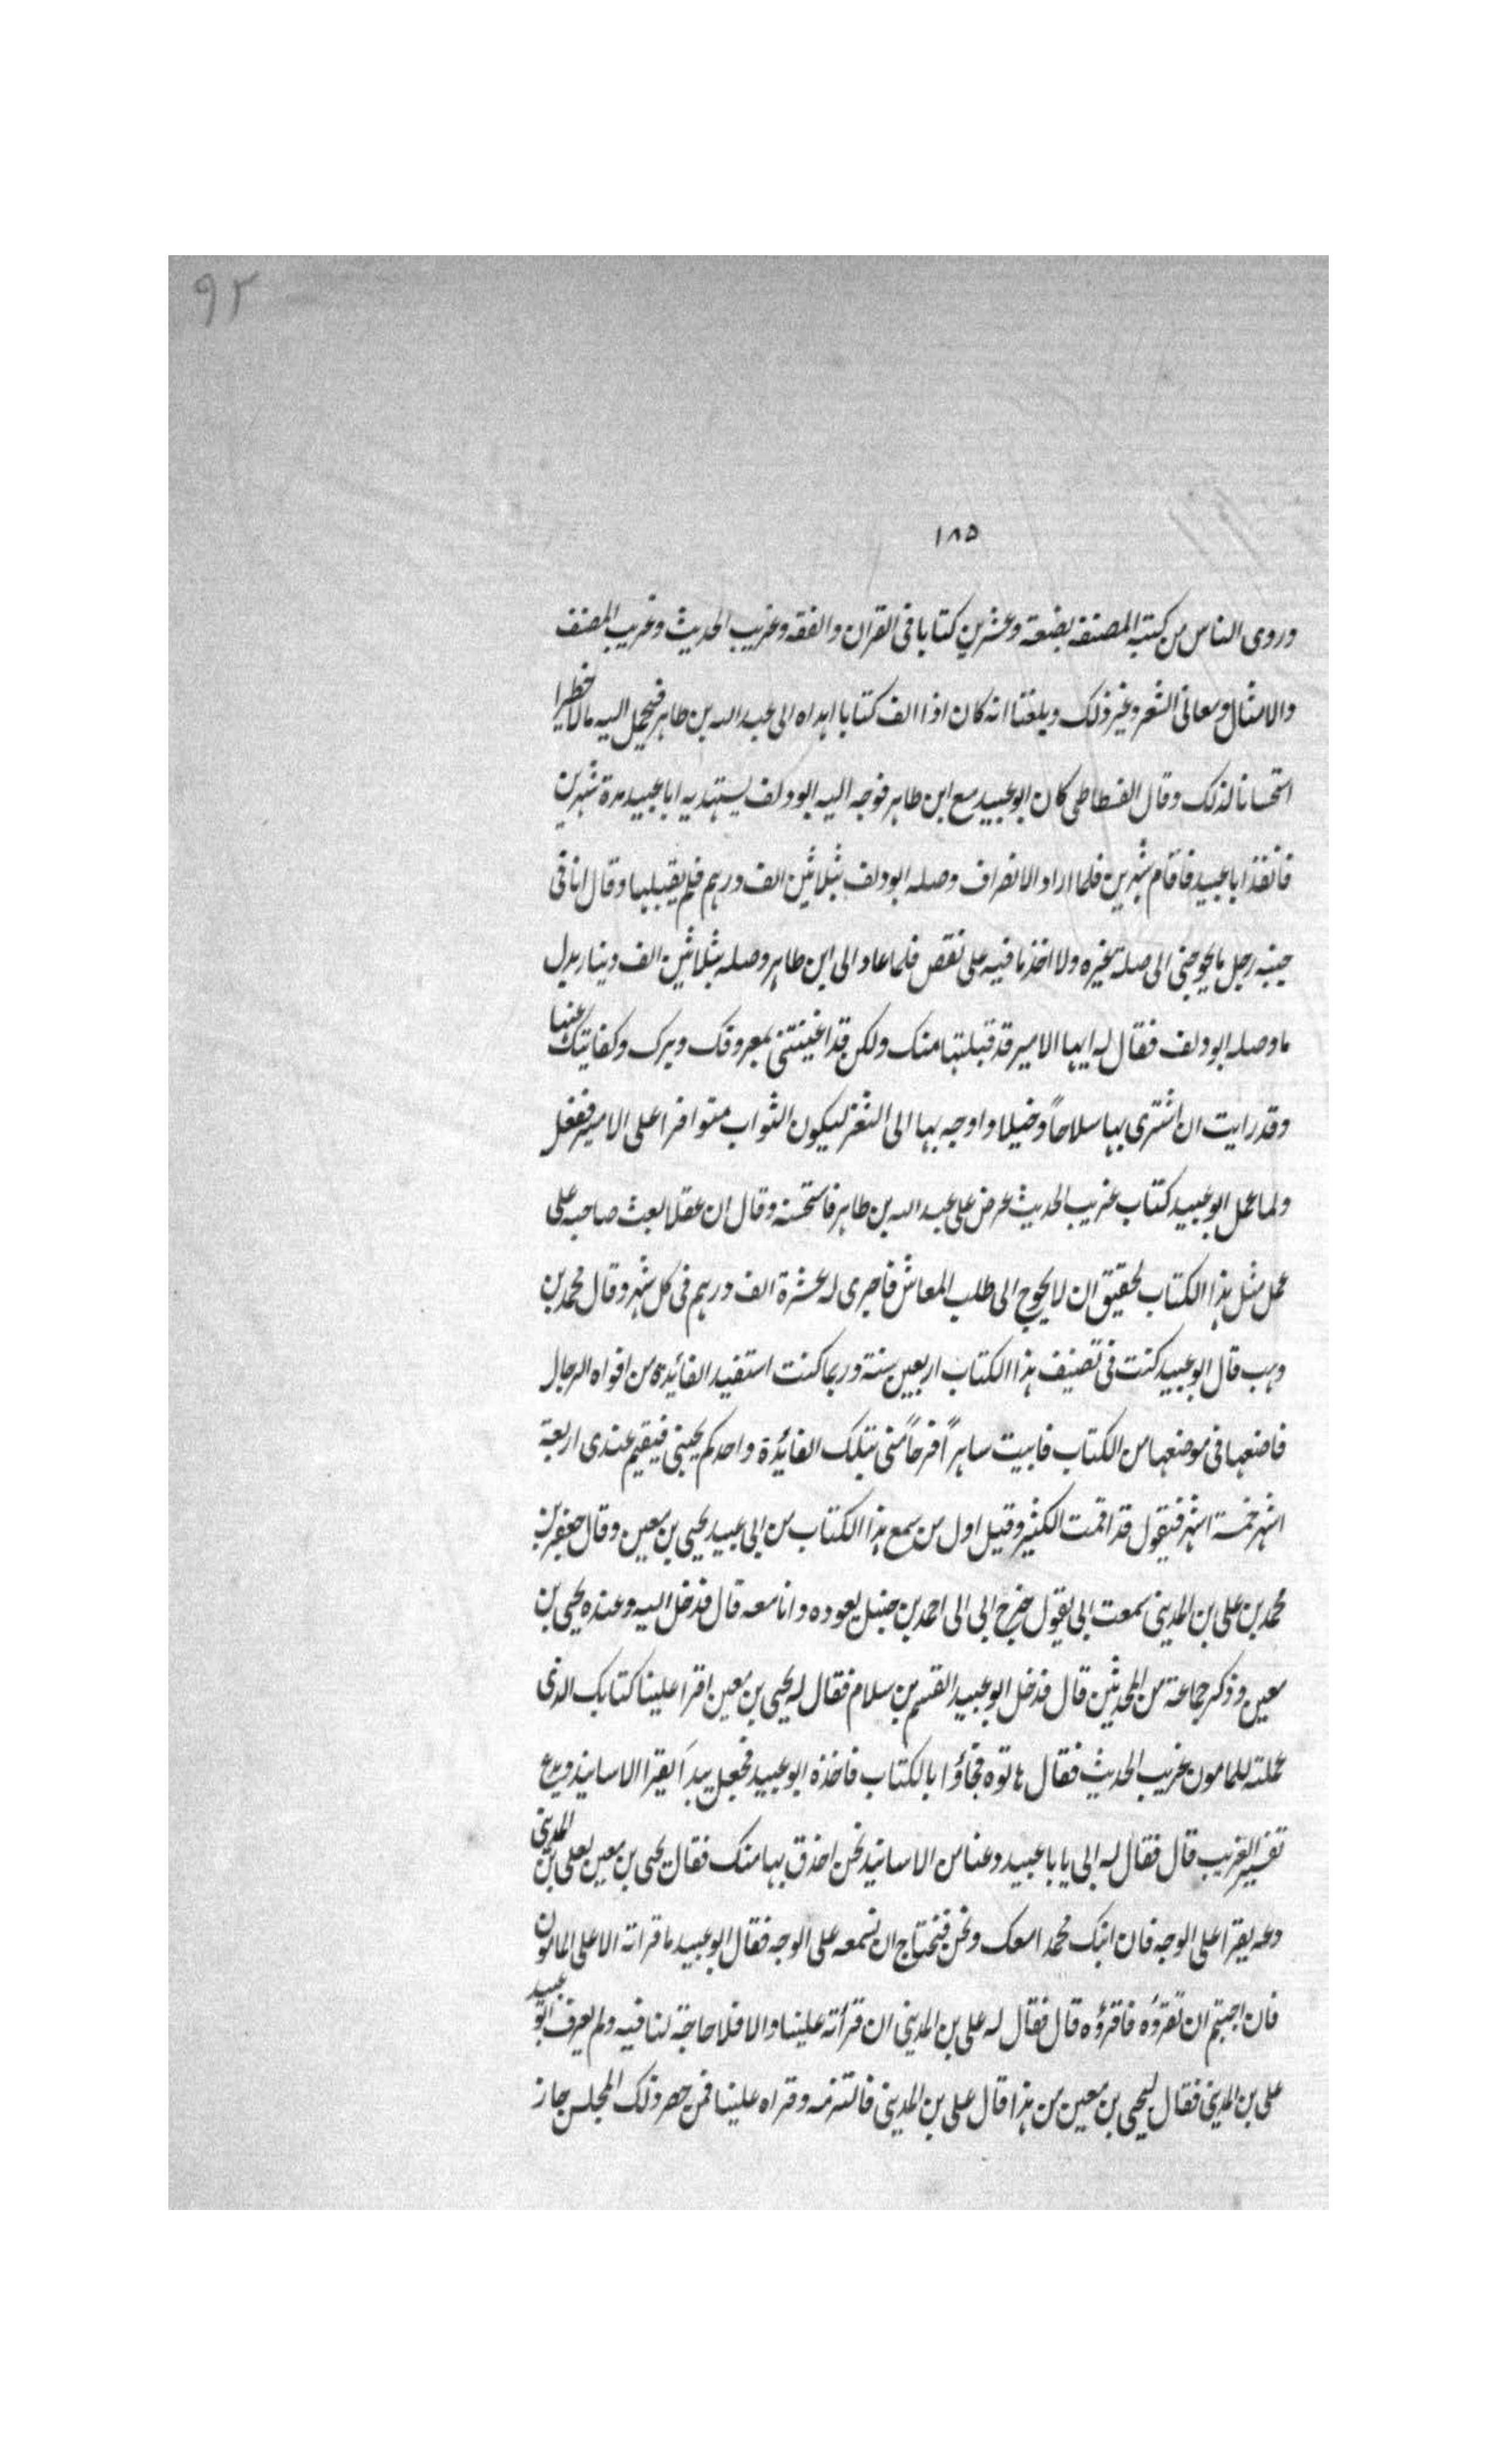 ٩٢
١٨٥
وروى الناس من كتبه المصنفة بضعة وعشرين كتابا فى القران والفقه وغريب الحديث وغريب المصنف
والامثال ومعانى الشعر وغير ذلك وبلغنا انه كان اذا الف كتابا اهداه الى عبد الله بن طاهر فيحمل اليه مالا خطيرا
استحسانا لذلك وقال الفسطاطى كان ابو عبيد مع ابن طاهر فوجه اليه ابو دلف يستهديه ابا عبيد مدة شهرين
فانفذ ابا عبيد فاقام شهرين فلما اراد الانصراف وصله ابو دلف بثلاثين الف درهم فلم يقبلها وقال انا فى
جنبه رجل ما يحوجنى الى صلة غيره ولا اخذ ما فيه على نقص فلما عاد الى ابن طاهر وصله بثلاثين الف دينار بدل
ما وصله ابو دلف فقال له ايها الامير قد قبلتها منك ولكن قد اغنيتنى بمعروفك وبرك وكفايتك عنها
وقد رايت ان اشترى بها سلاحاً وخيلا واوجه بها الى الثغر ليكون الثواب متوافرا على الامير ففعل
ولما عمل ابو عبيد كتاب غريب الحديث عرض على عبد الله بن طاهر فاستحسنه وقال ان عقلا بعث صاحبه على
عمل مثل هذا الكتاب لحقيق ان لا يحوج الى طلب المعاش فاجرى له عشرة الف درهم فى كل شهر وقال محمد بن
وهب قال ابو عبيد كنت فى تصنيف هذا الكتاب اربعين سنة وربما كنت استفيد الفائدة من افواه الرجال
فاضعها فى موضعها من الكتاب فابيت ساهراً فرحاً منى بتلك الفائدة واحدكم يجينى فيقيم عندى اربعة
اشهر خمسة اشهر فيقول قد اقمت الكثير وقيل اول من سمع هذا الكتاب من ابى عبيد يحيى بن معين وقال جعفر بن
محمد بن على بن المدينى سمعت ابى يقول خرج ابى الى احمد بن حنبل يعوده وانا معه قال فدخل اليه وعنده يحيى بن
معين وذكر جماعة من المحدثين قال فدخل ابو عبيد القسم بن سلام فقال له يحيى بن معين اقرا علينا كتابك الذى
عملته للمامون غريب الحديث فقال هاتوه فجاؤا بالكتاب فاخذه ابو عبيد فجعل يبدأ يقرا الاسانيد ويدع
تفسير الغريب قال فقال له ابى يا با عبيد دعنا من الاسانيد نحن احذق بها منك فقال يحيى بن معين لعلى بن المدينى
دعه يقرا على الوجه فان ابنك محمد امعك ونحن فنحتاج ان نسمعه على الوجه فقال ابو عبيد ما قراته الا على المامون
فان احببتم ان تقرؤه فاقرؤه قال فقال له على بن المدينى ان قرأته علينا والا فلا حاجة لنا فيه ولم يعرف ابو عبيد
على بن المدينى فقال ليحيى بن معين من هذا قال على بن المدينى فالتزمه وقراه علينا فمن حضر ذلك المجلس جاز